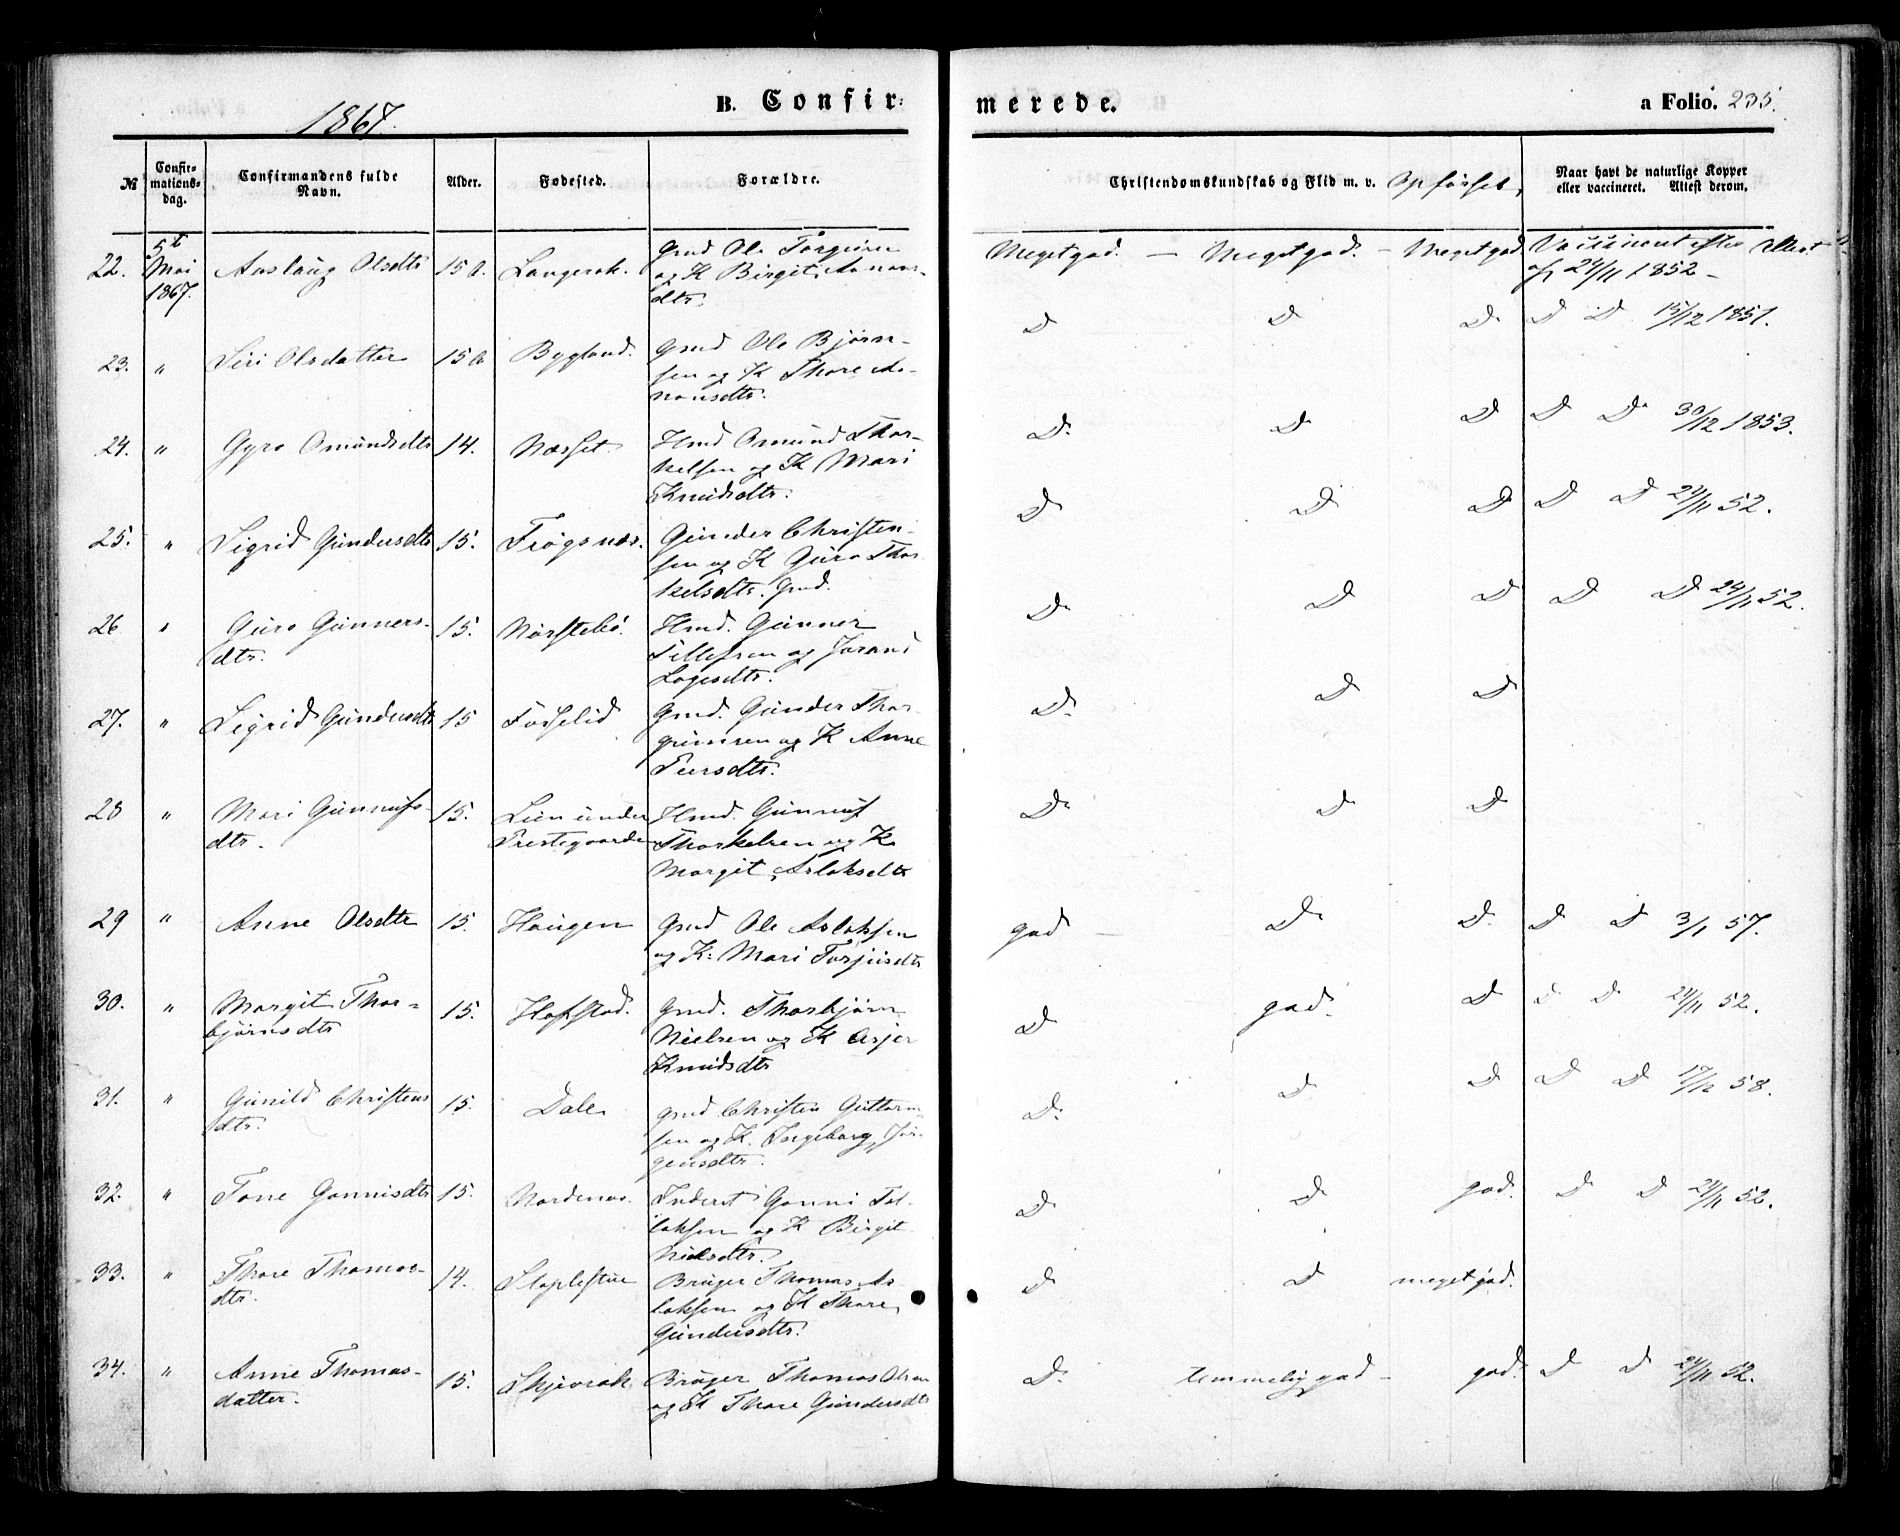 1867.
B. Confir-
merede.
a Folio. 235.
№
Confir-
mations-
dag.
Confirmandens fulde
Navn.
Alder.
Fødested.
Forældre.
Christendomskundskab og Flid m. v. Opførsel,
Naar havt de naturlige Kopper
eller vaccineret. Attest derom.
22. 5t Mai 1867. Aaslaug Olsdtr 15 A. Langerak. Gmd Ole
og K Birgit Aanons-
dtr.
Megetgod. — Megetgod. — Megetgod Vaccineret efter Attest
af 24/11 1852 —
23. " Siri Olsdatter 15 A Bygland. Gmd Ole Bjørn-
sen og K Thore Aa-
nonsdtr.
D D D. D D 15/12 1851.
24. " Gyro Omundsdtr 14. Næsset. Hmd Omund Thor-
kelsen og K Mari
Knudsdtr.
D. D D D D. 30/12 1853.
25. " Sigrid Gundersdtr 15. Frøgsnæs. Gunder Christen-
sen og K Guro Thor-
kelsdtr. Gmd.
D D D D D 24/11 52.
26 " Guro Gunners-
dtr. 15. Nørstebø. Hmd. Gunner
Tellefsen og Joran
D. D D D D 24/11 52.
27. " Sigrid Gundersdtr 15 Fosselid Gmd. Gunder Thor-
grimsen og K Anne
Peersdtr.
D. D D
28 " Mari Gunnufs-
dtr. 15. Lien under
Prestegaarden Hmd. Gunnuf
Thorkelsen og K
Margit Aslaksdtr
D. D D
29 " Anne Olsdtr 15. Haugen Gmd Ole Aslaksen
og K. Mari Torjusdtr
god — D. D. D D 3/1 57.
30. " Margit Thor-
bjørnsdtr 15. Hofstad. Gmd. Thorbjørn
Nielsen og K Asjer
Knudsdtr
D god. D D D 24/11 52.
31. " Gunild Christens
dtr. 15. Dale Gmd Christen Guttorm-
sen og K. Ingeborg Jør-
gensdtr.
D. D D D D 17/12 58.
32. " Tone Gonnisdtr 15. Nordenæs. Inderst Gonni Tol-
laksen og K Birgit
Nielsdtr.
D. D god. D D 24/11 52.
33. " Thore Thomas-
dtr. 14. Staplestue Bruger Thomas As-
laksen og K Thore
Gundersdtr.
D D meget god.
34. " Anne Thomas-
datter. 15. Skjevrak Bruger Thomas Olsen
og K Thore Gundersdtr
D. temmelig god — god. D D 24/11 52.